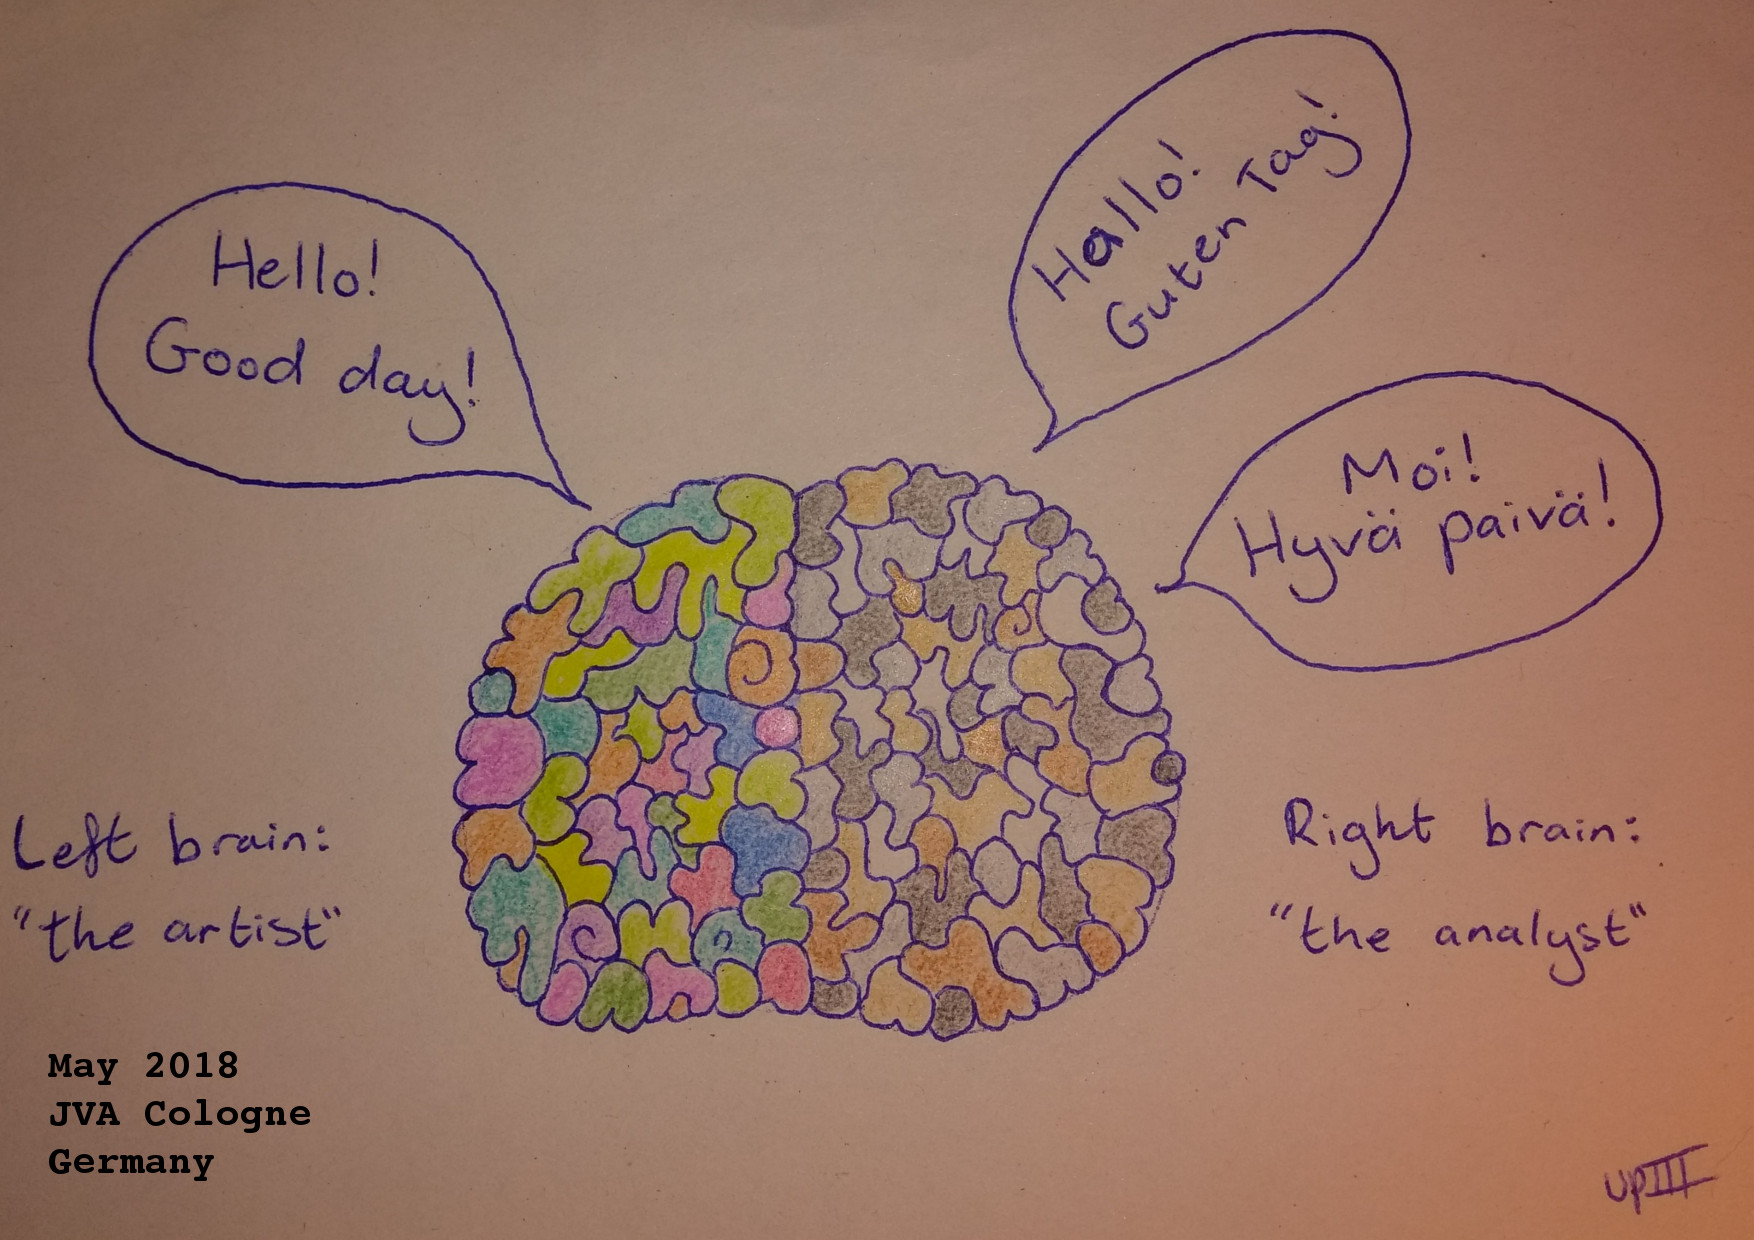 Hello!
Good day!
Hallo!
Guten Tag!
Moi!
Hyvä päivä!
Left brain:
"the artist"
Right brain:
"the analyst"
May 2018
JVA Cologne
Germany
upIII